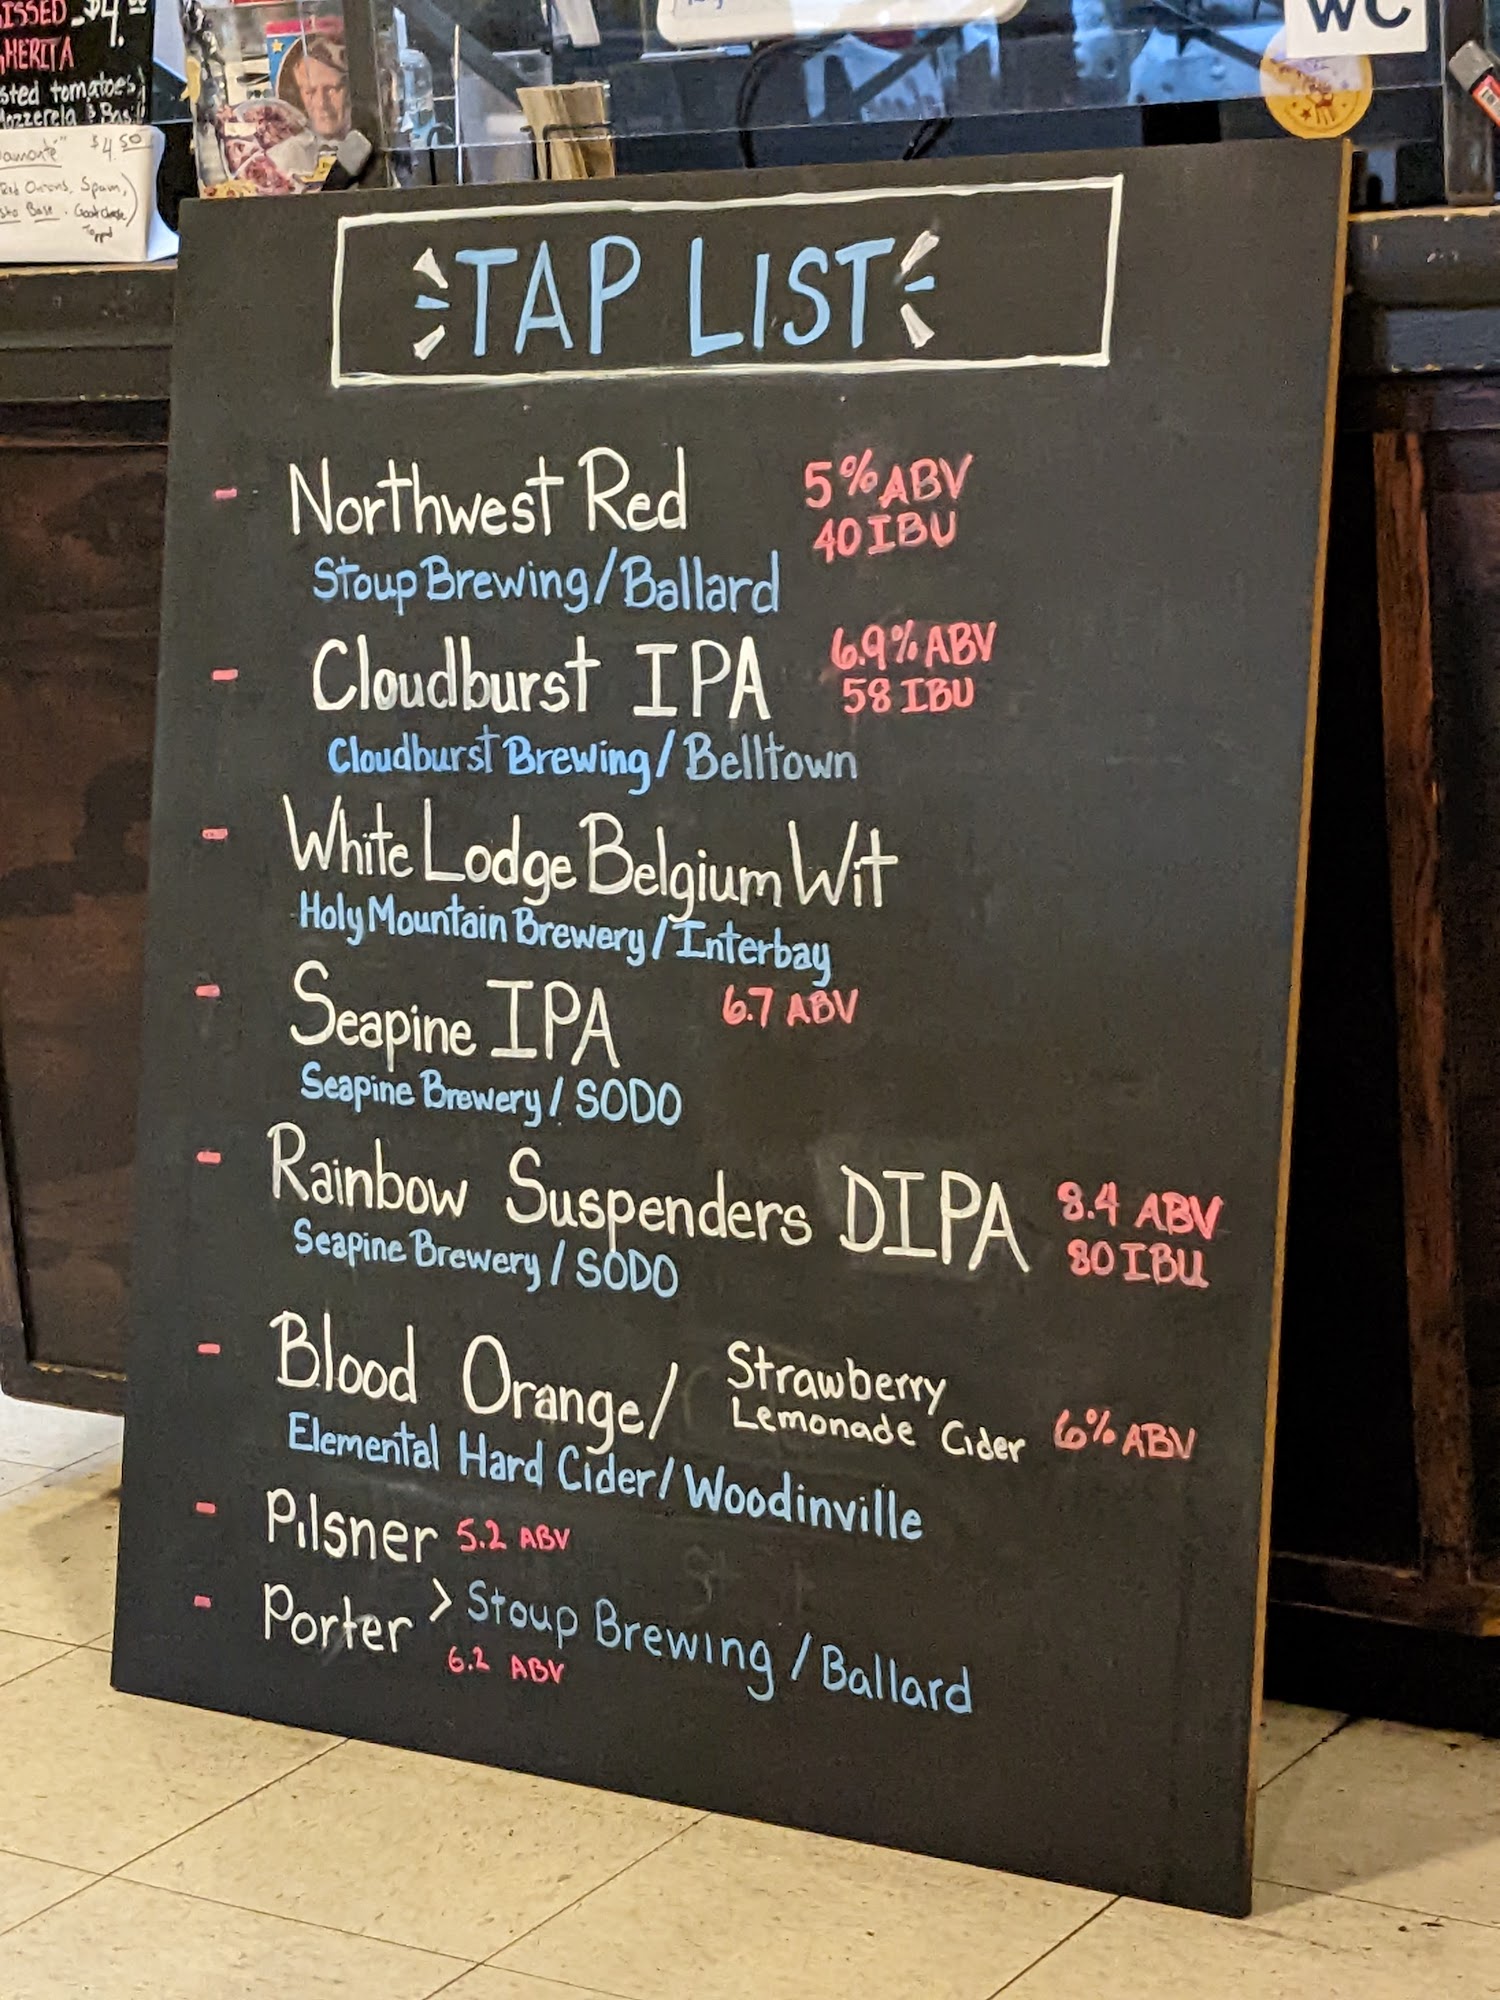 ISSED - $4.00
GHERITA
sted tomatoes,
Mozzerela & Basil
$4.50
Red Onions, Spam,
WC
TAP LIST
- Northwest Red 5% ABV
40 IBU
Stoup Brewing/Ballard
- Cloudburst IPA 6.9% ABV
58 IBU
Cloudburst Brewing/Belltown
- White Lodge Belgium Wit
Holy Mountain Brewery/Interbay
- Seapine IPA 6.7 ABV
Seapine Brewery/SODO
- Rainbow Suspenders DIPA 8.4 ABV
80 IBU
Seapine Brewery/SODO
- Blood Orange/ Strawberry
Lemonade Cider 6% ABV
Elemental Hard Cider/Woodinville
- Pilsner 5.2 ABV
- Porter > Stoup Brewing/Ballard
6.2 ABV